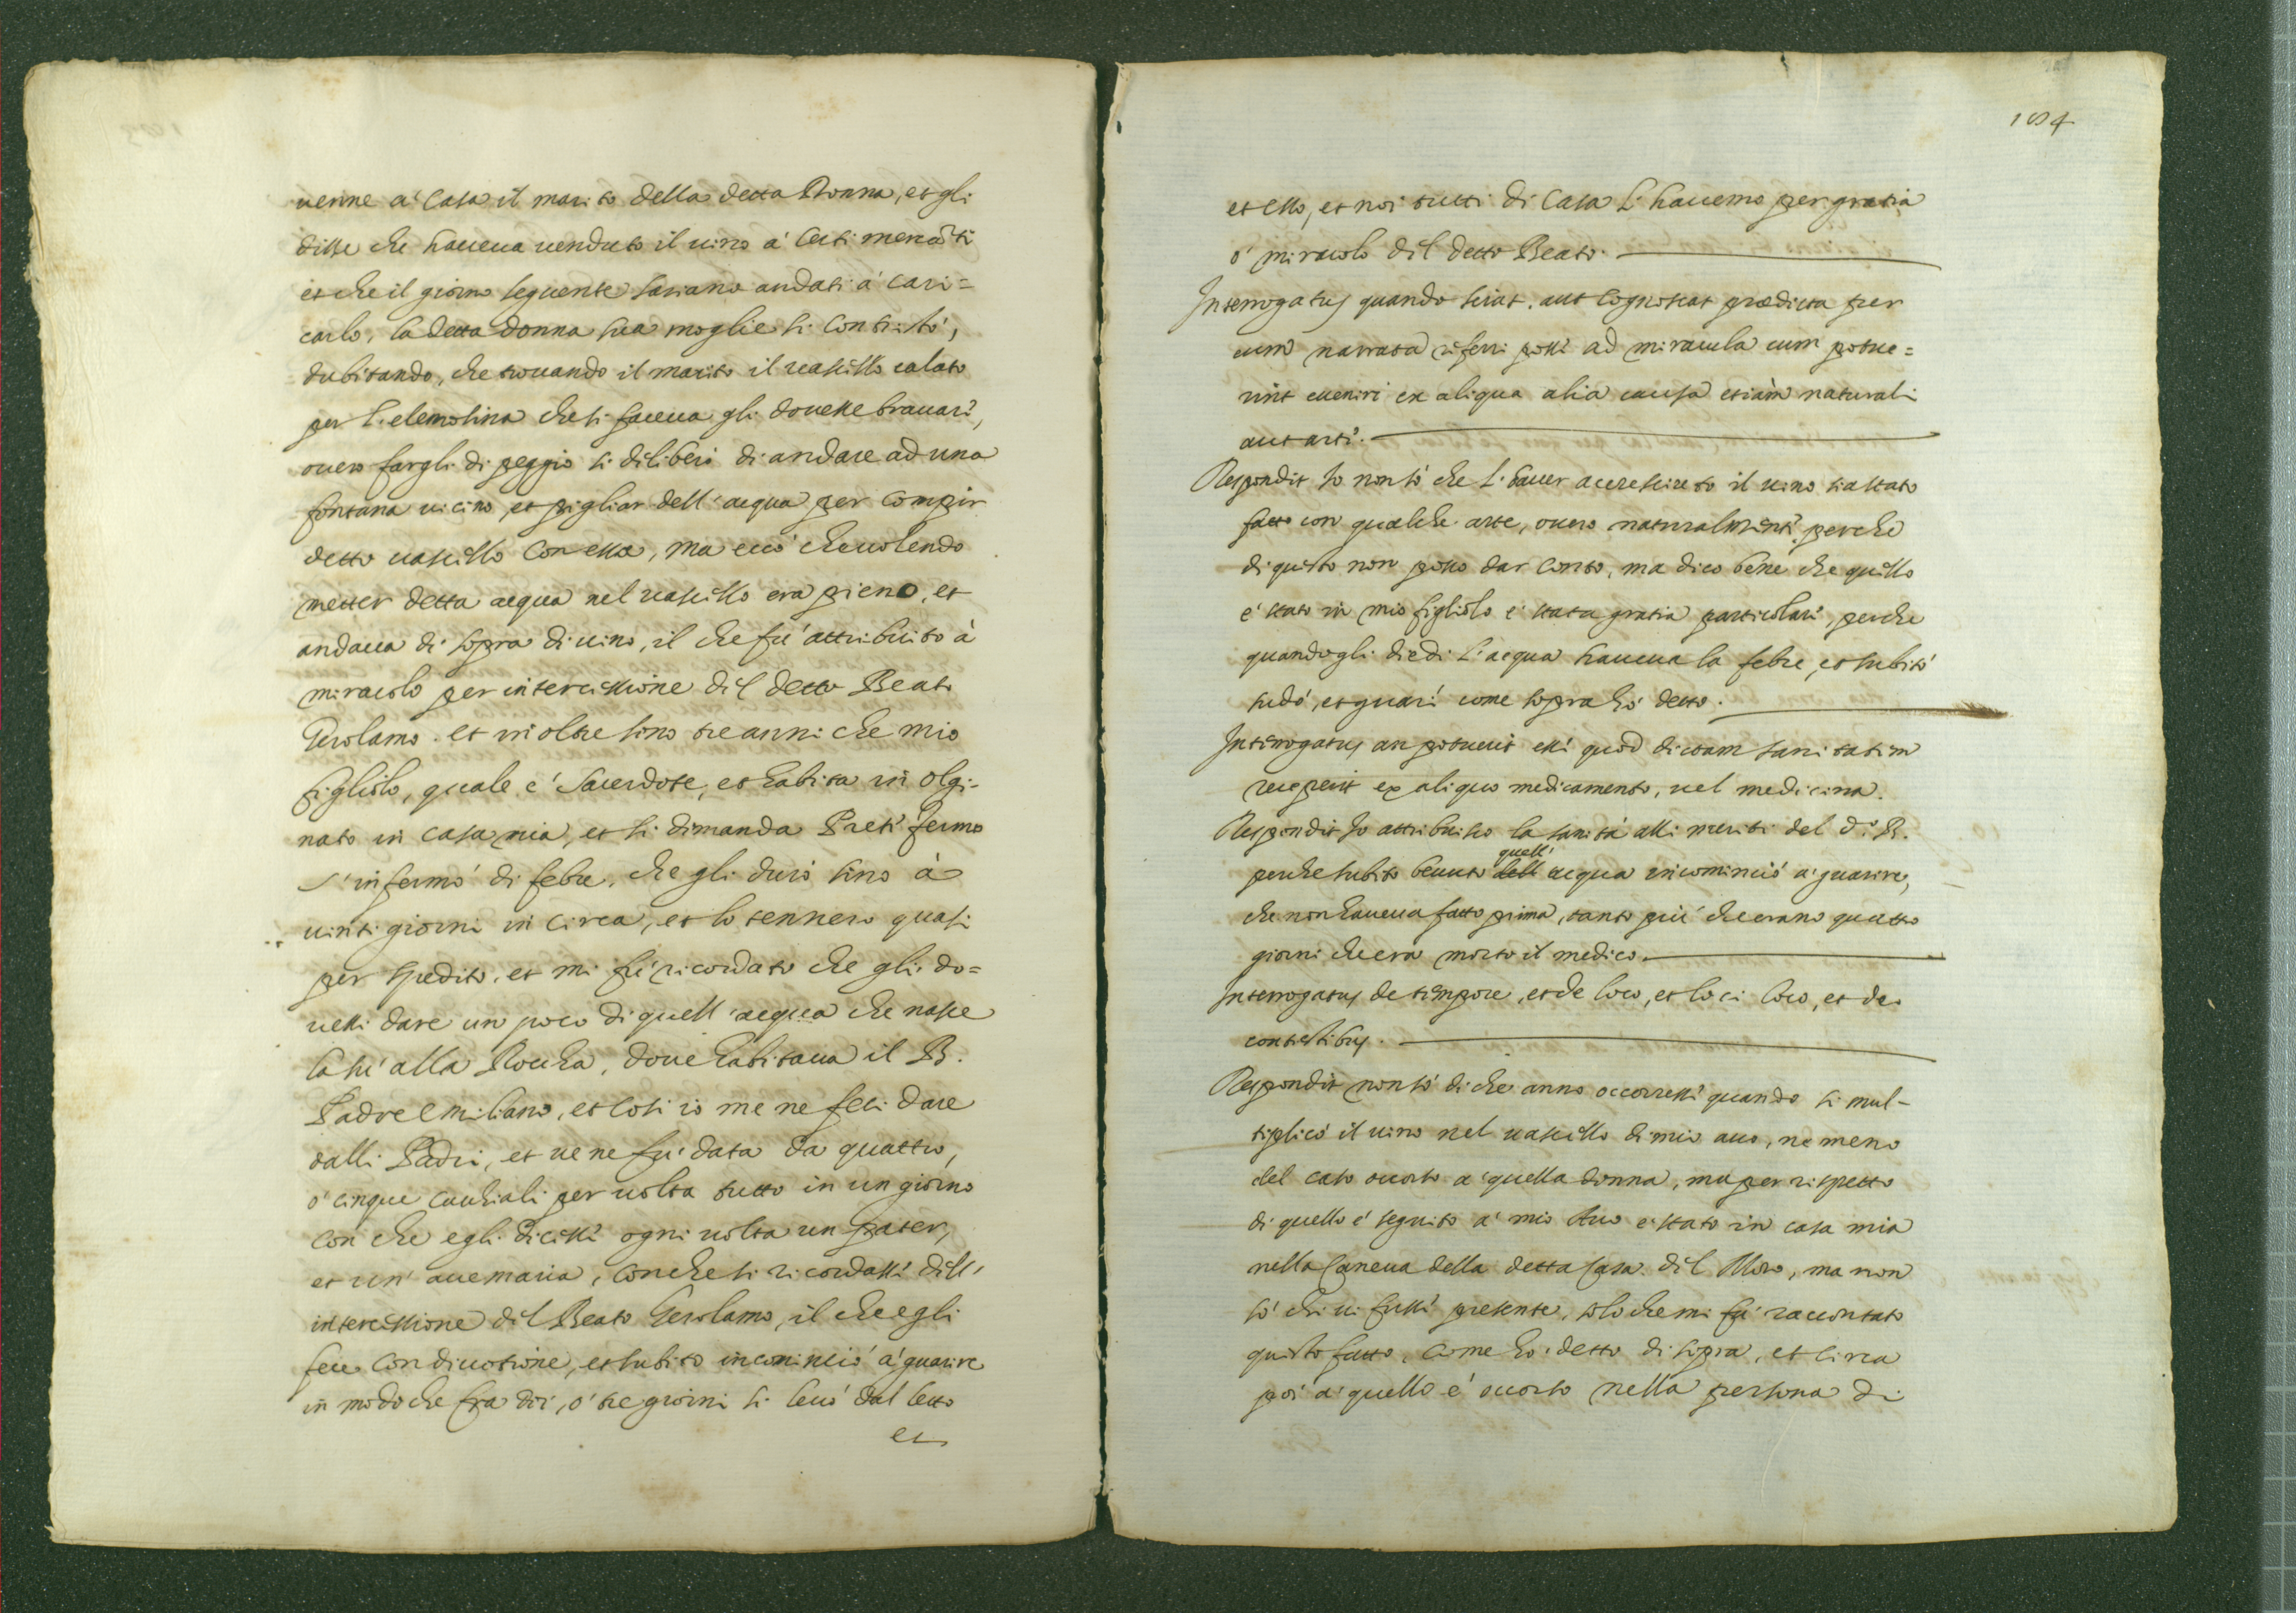 uenne a' Casa il marito della detta Donna, et gli
disse che haueua uenduto il uino a' Certi mercāti
et che il giorno seguente sariano andati a' cari=
carlo, la detta donna sua moglie si contristò,
dubitando, che trouando il marito il uassello calato
per l'elemosina che si faceua gli douesse brauare,
ouero fargli di peggio si deliberò di andare ad una
fontana uicino, et pigliar dell'acqua per compir
detto uassello con essa, ma ecco che uolendo
metter detta acqua nel uassello era pieno, et
andaua di sopra di uino, il che fu' attribuito à
miracolo per intercessione del detto Beato
Gerolamo. et in oltre sono tre anni che mio
figliolo, quale e' Sacerdote, et habita in Olgi-
nato in casa mia, et si dimanda Prete fermo
s'infermò di febre, che gli durò sino à
uinti giorni in circa, et lo tennero quasi
per spedito, et mi fu' ricordato che gli do=
uessi dare un poco di quell'acqua che nasce
la sù alla Roccha, doue habitaua il B.
Padre Emiliano, et così io me ne feci dare
dalli Padri, et ue ne fu' data da quattro,
o' cinque cucchiali per uolta tutto in un giorno
con che egli dicesse ogni uolta un pater,
et un' aue maria, con che si ricordasse dell'
intercessione del Beato Gerolamo, il che egli
fece con diuotione, et subito incominciò a' guarire
in modo che fra doi, o' tre giorni si leuò dal letto
et
184
et esso, et noi tutti di Casa l'hauemo per gratia
o' miracolo del detto Beato.
Interrogatus quando sciat, aut cognoscat prædicta per
eum narrata referri posse ad miracula cum potue=
rint euenire ex aliqua alia causa etiam naturali
aut arte.
Respondit Io non sò che l'hauer accresciuto il uino sia stato
fatto con qualche arte, ouero naturalmente, perche
di questo non posso dar conto, ma dico bene che quello
e' stato in mio figliolo e' stata gratia particolare, perche
quando gli diedi l'acqua haueua la febre, et subito
sudò, et guarì come sopra hò detto.
Interrogatus an potuerit esse quod dictam sanitatem
receperit ex aliquo medicamento, uel medicina.
Respondit Io attribuisco la sanità alli meriti del d.º B.
perche subito beuuto dell quell' acqua incominciò a' guarire,
che non haueua fatto prima, tanto più che erano quattro
giorni che era morto il medico.
Interrogatus de tempore, et de loco, et loci loco, et de
contestibus.
Respondit non sò di che anno occorresse quando si mul-
tiplicò il uino nel uassello di mio auo, ne meno
del caso occorso a' quella donna, ma per rispetto
di quello e' seguito a' mio Auo e' stato in casa mia
nella Caneua della detta Casa del Moro, ma non
sò chi ui fusse presente, solo che mi fu' raccontato
questo fatto, come hò detto di sopra, et circa
poi a' quello e' occorso nella persona di